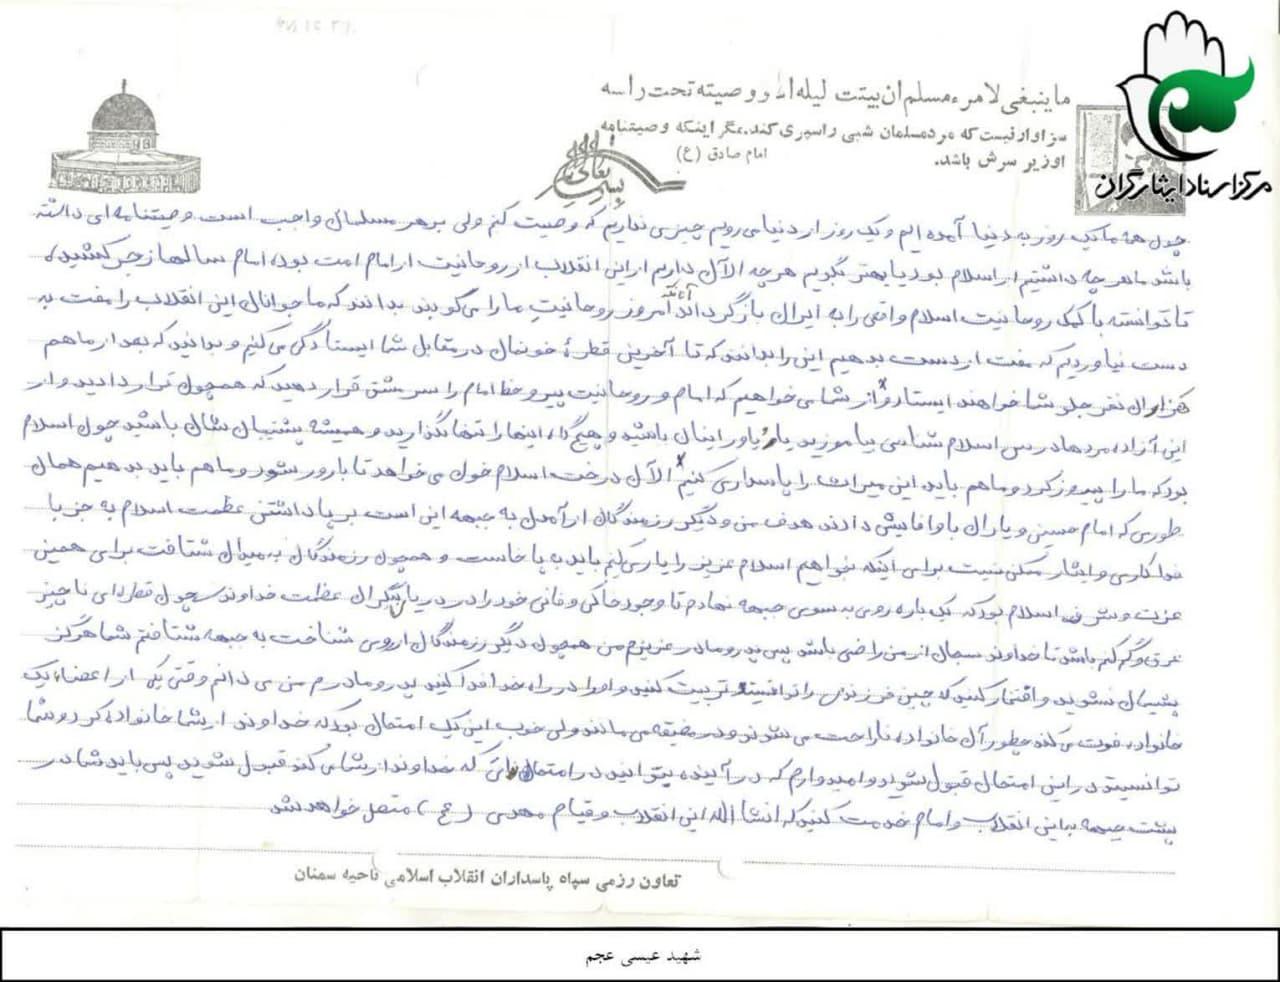 ما ینبغی لامرء مسلم ان یبیت لیله الا و وصیته تحت راسه
سزاوار نیست که مرد مسلمان شبی را سپری کند، مگر اینکه وصیتنامه
او زیر سرش باشد.
امام صادق (ع)
بسمه تعالی
مرکز اسناد ایثارگران
چون همه ما یک روز به دنیا آمده ایم و یک روز از دنیا می رویم چیزی نداریم که وصیت کنم ولی بر هر مسلمان واجب است وصیتنامه ای داشته
باشد ما هر چه داشتیم از اسلام بود یا بهتر بگویم هر چه الآن داریم از این انقلاب از روحانیت از امام امت بود، امام سالها زجر کشید،
تا توانسته با کمک روحانیت اسلام واقعی را به ایران بازگرداند آنانکه امروز روحانیت ما را می کوبند بدانند که ما جوانان این انقلاب را مفت به
دست نیاوردیم که مفت از دست بدهیم این را بدانند که تا آخرین قطرۀ خونمان در مقابل شما ایستادگی می کنیم و بدانید که بعد از ما هم
هزاران نفر جلو شما خواهند ایستاد و از شما می خواهیم که امام و روحانیت پیرو خط امام را سرمشق قرار دهید که همچون قرار دادید و از
این آزاد مردها درس اسلام شناسی بیاموزید یار و یاور اینان باشید و هیچ گاه اینها را تنها نگذارید و همیشه پشتیبان شان باشید چون اسلام
بود که ما را پیروز کرد و ما هم باید این میراث را پاسداری کنیم الآن درخت اسلام خون می خواهد تا بارور شود و ما هم باید بدهیم همان
طوری که امام حسین و یاران باوفایش دادند هدف من و دیگر رزمندگان از آمدن به جبهه این است برپا داشتن عظمت اسلام به جز با
فداکاری و ایثار ممکن نیست برای اینکه بخواهیم اسلام عزیز را یاری کنم باید به پا خاست و همچون رزمندگان به میدان شتافت برای همین
عزت و شرف اسلام بود که یک باره روی به سوی جبهه نهادم تا وجود خاکی و فانی خود را در دریای بیکران عظمت خداوند همچون قطره ای ناچیز
غرق و گم کنم باشد تا خداوند سبحان از من راضی باشد پس پدر و مادر عزیزم من همچون دیگر رزمندگان از روی شناخت به جبهه شتافتم شما هرگز
پشیمان نشوید و افتخار کنید که چنین فرزندی را توانستید تربیت کنید و او را در راه خدا فدا کنید پدر و مادرم من می دانم وقتی یکی از اعضاء یک
خانواده فوت می کند چطور آن خانواده ناراحت می شوند و در مضیقه می مانند ولی خوب این یک امتحان بود که خداوند از شما خانواده کرد و شما
توانستید در این امتحان قبول شوید و امیدوارم که در آینده بتوانید در امتحان هائی که خداوند از شما می کند قبول شوید پس باید شما در
پشت جبهه به این انقلاب و امام خدمت کنید که انشاالله این انقلاب و قیام مهدی (عج) متصل خواهد شد
تعاون رزمی سپاه پاسداران انقلاب اسلامی ناحیه سمنان
شهید عیسی عجم